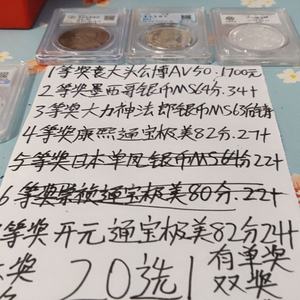 1等奖袁大头公博AV50.1700元
2等奖墨西哥银币MS64分.34+
3等奖大力神法郎银币MS63
4等奖康熙通宝极美82分.27+
5等奖日本单凤银币MS64分22+
6等奖崇祯通宝极美80分.22+
等奖开元通宝极美82分24+
奖
20选1
有单奖
双奖